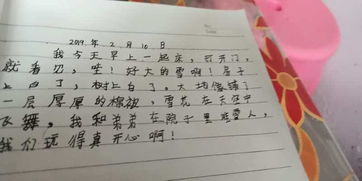 2019年2月10日
我今天早上一起床,打开门,
就看见,哇!好大的雪啊!房子
上白了,树上白了。大地像铺了
一层厚厚的棉被,雪花在天空中
飞舞。我和弟弟在院子里堆雪人,
我们玩得真开心啊!